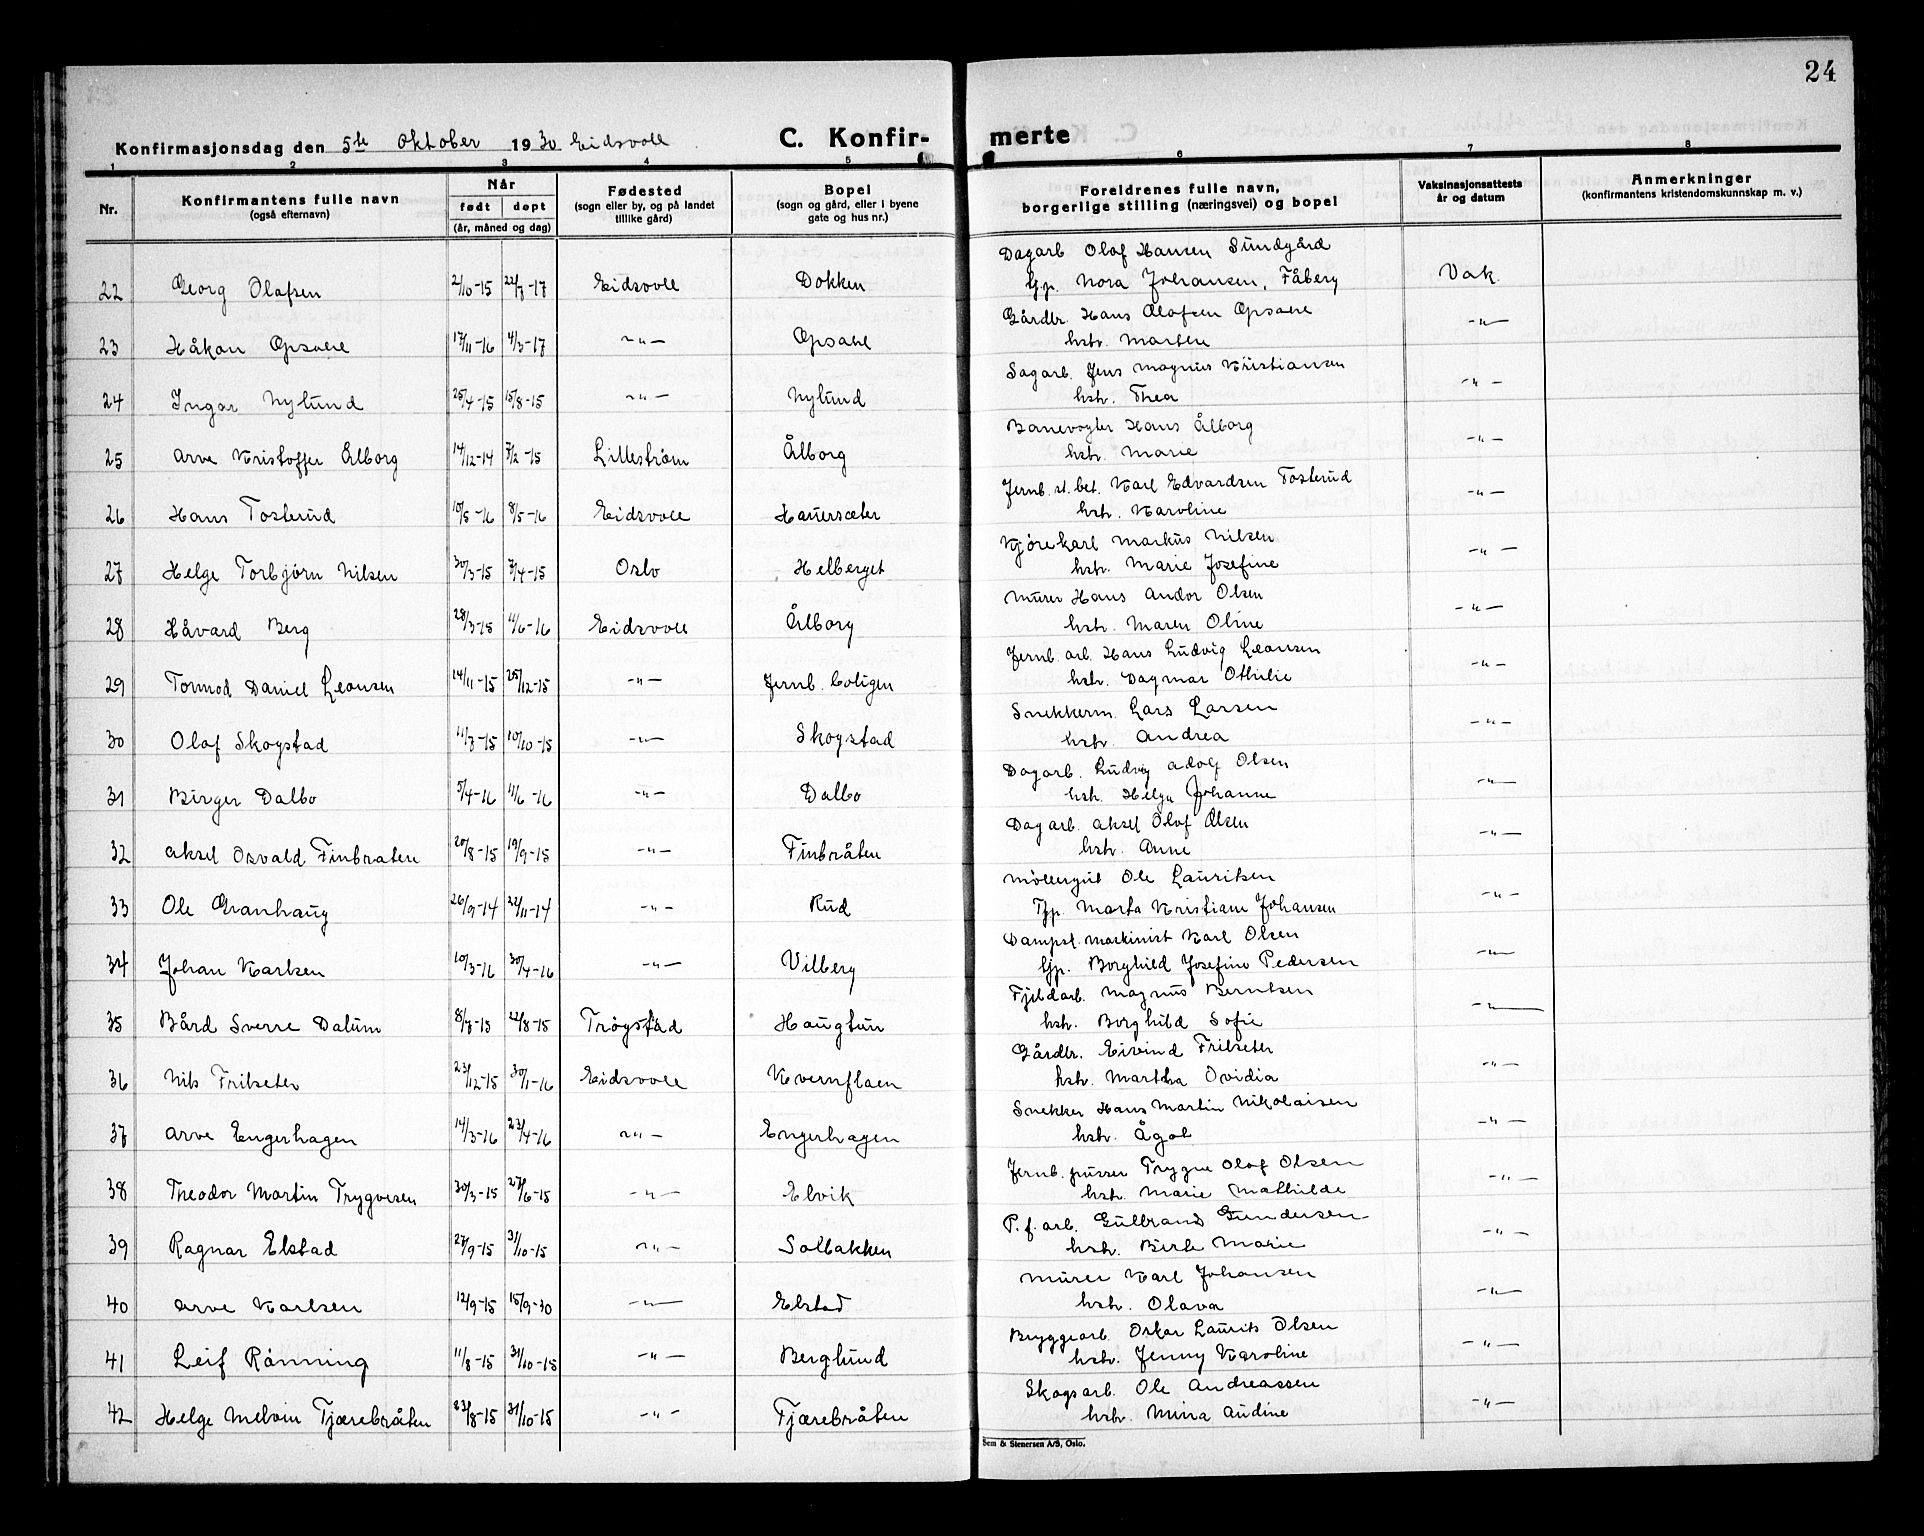 24
Konfirmasjonsdag den 5te Oktober 1930 Eidsvoll C. Konfir- merte
1 2 3 4 5 6 7 8
Nr. Konfirmantens fulle navn (også efternavn) Når født døpt (år, måned og dag) Fødested (sogn eller by, og på landet tillike gård) Bopel (sogn og gård, eller i byene gate og hus nr.) Foreldrenes fulle navn, borgerlige stilling (næringsvei) og bopel Vaksinasjonsattests år og datum Anmerkninger (konfirmantens kristendomskunnskap m. v.)
Dagarb Olaf Hansen Sundgård
22 Georg Olafsen 2/10-15 22/7-17 Eidsvoll Dokken Gp. Nora Johansen, Fåberg Vak.
Gårdbr. Hans Olafsen Opsahl
23 Håkon Opsahl 17/11-16 4/3-17 -"- Opsahl hstr. Marten -"-
Sagarb. Jens Magnus Kristiansen
24 Ingar Nylund 25/4-15 15/8-15 -"- Nylund hstr. Thea -"-
Banevogter Hans Ålborg
25 Arve Kristoffer Ålborg 14/12-14 7/2-15 Lillestrøm Ålborg hstr. Marie -"-
Jernb. st. bet. Karl Edvardsen Tosterud
26 Hans Tosterud 10/5-16 8/5-16 Eidsvoll Hauersæter hstr. Karoline -"-
Kjørekarl Markus Nilsen
27 Helge Torbjørn Nilsen 30/3-15 7/4-15 Oslo Helberget hstr. Marie Josefine -"-
Murer Hans Andor Olsen
28 Håvard Berg 28/3-15 4/6-16 Eidsvoll Ålborg hstr. Maren Oline -"-
Jernb. arb. Hans Ludvig Leonsen
29 Tormod Daniel Leonsen 14/11-15 25/12-15 -"- Jernb. boligen hstr. Dagmar Othilie -"-
Snekkerm. Lars Larsen
30 Olaf Skogstad 11/7-15 10/10-15 -"- Skogstad hstr. Andrea -"-
Dagarb. Ludvig Adolf Olsen
31 Birger Dalbo 5/4-16 11/6-16 -"- Dalbo hstr. Helga Johanne -"-
Dagarb. Aksel Olaf Olsen
32 Aksel Osvald Finbraten 20/8-15 19/9-15 -"- Finbråten hstr. Anne -"-
Möllergut Ole Lauritsen
33 Ole Granhaug 26/9-14 22/11-14 -"- Rud Tjp. Marta Kristiane Johansen -"-
Dampsl. maskinist Karl Olsen
34 Johan Karlsen 10/3-16 30/4-16 -"- Vilberg Gp. Borghild Josefine Pedersen -"-
Fjeldarb. Magnus Berntsen
35 Bård Sverre Dalum 8/7-15 22/8-15 Trøgstad Haugtun hstr. Borghild Sofie -"-
Gårdbr. Eivind Frilseter
36 Nils Frilseter 23/12-15 30/1-16 Eidsvoll Kvernflaen hstr. Martha Ovidia -"-
Snekker Hans Martin Nikolaisen
37 Arve Engerhagen 14/3-16 23/4-16 -"- Engerhagen hstr. Ågot -"-
Jernb. pusser Trygve Olaf Olsen
38 Theodor Martin Trygvesen 30/3-15 27/6-15 -"- Elvik hstr. Marie Mathilde -"-
P. f. arb. Gulbrand Gundersen
39 Ragnar Elstad 27/9-15 31/10-15 -"- Solbakken hstr. Berte Marie -"-
Murer Karl Johansen
40 Arve Karlsen 12/9-15 15/9-30 -"- Elstad hstr. Olava -"-
Bryggearb. Oskar Laurits Olsen
41 Leif Rønning 11/8-15 31/10-15 -"- Berglund hstr. Jenny Karoline -"-
Skogsarb. Ole Andreassen
42 Helge Melvin Tjærebråten 23/8-15 31/10-15 -"- Tjærebråten hstr. Mina Audine -"-
Sem & Stenersen A/S, Oslo.